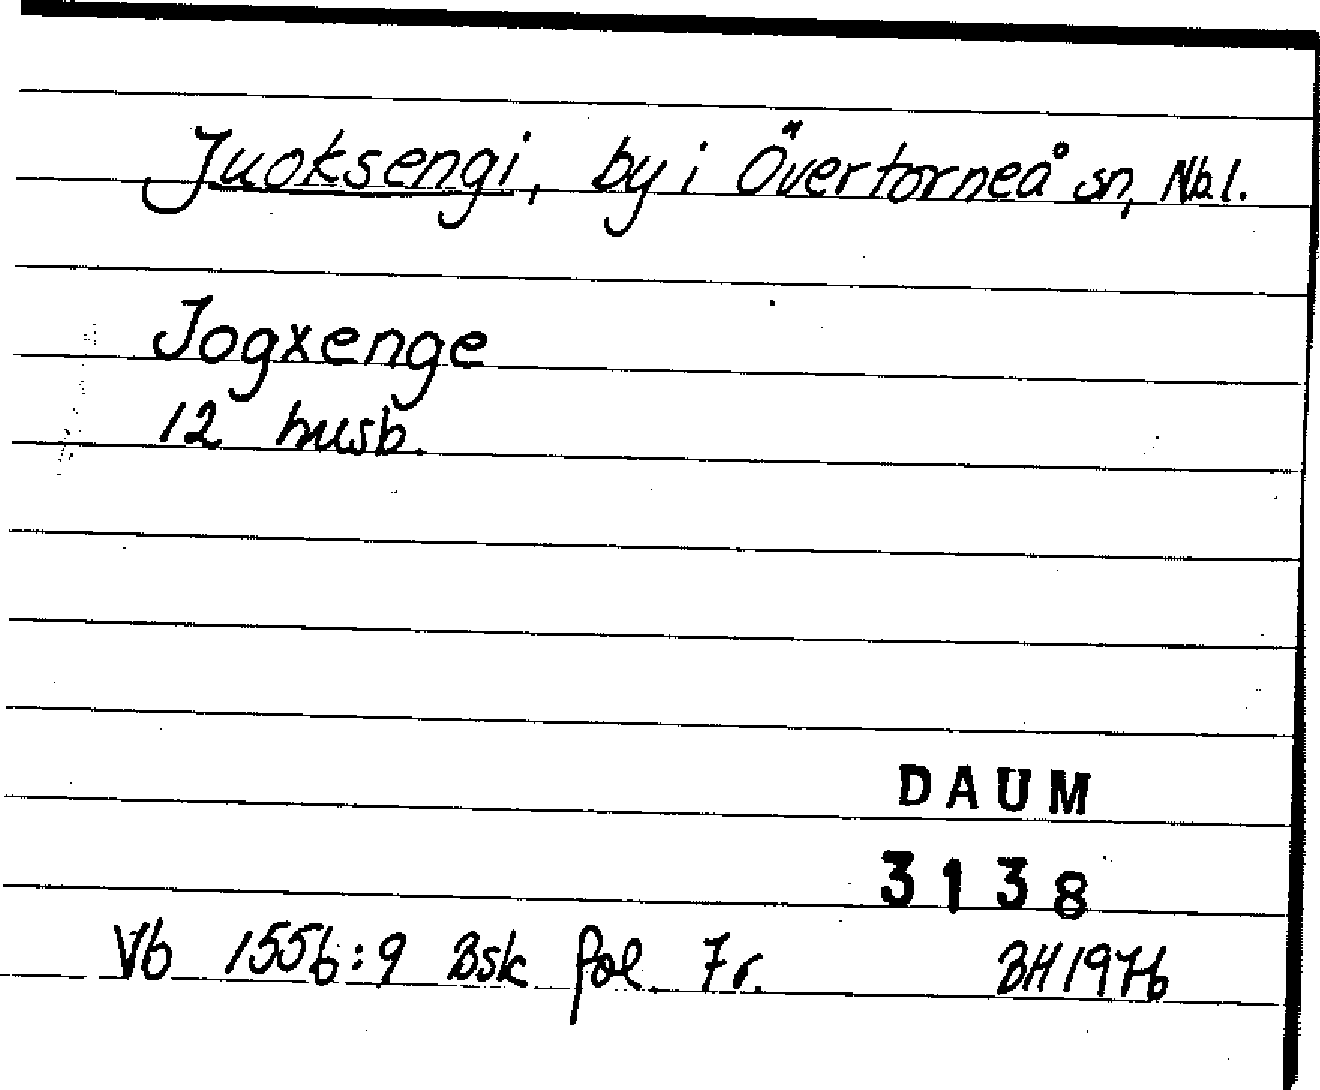 Juoksengi, by i Övertorneå sn, Nb.l.
Jogxenge
12 husb.
DAUM
3138
Vb 1556:9 Bsk fol. 7r. BH 1976